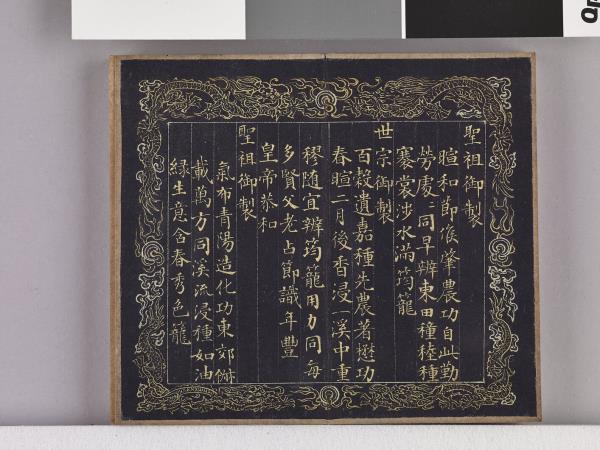 聖祖御製
暄和節候肇農功自此勤
勞處〻同早辨東田穜稑種
褰裳涉水滿筠籠
世宗御製
百穀遺嘉種先農著懋功
春暄二月後香浸一溪中重
穋随宜辨筠籠用力同每
多賢父老占節識年豐
皇帝恭和
聖祖御製
氣布青陽造化功東郊俶
載萬方同溪流浸種如油
緑生意含春秀色籠